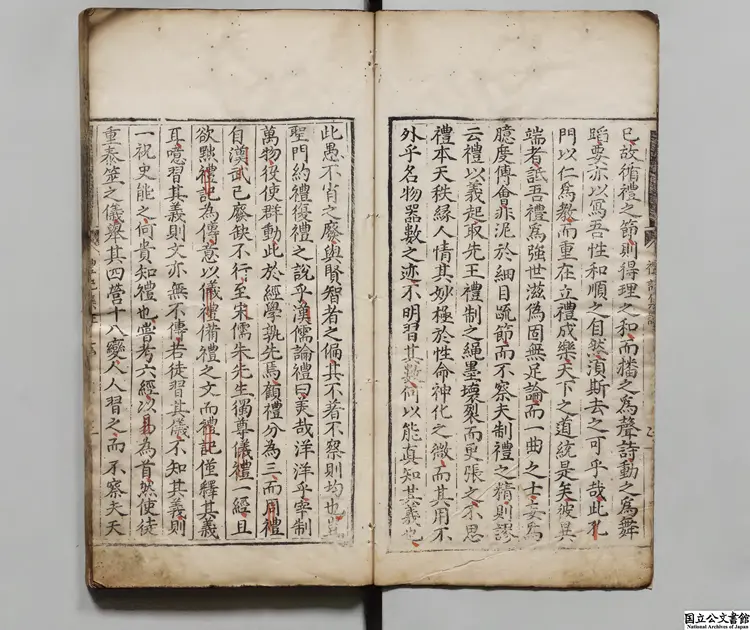 已故循禮之節則得理之和而播之為聲詩動之為舞
蹈要亦以寫吾性和順之自然湏斯去之可乎哉此孔
門以仁為教而重在立禮成樂天下之道統是矣彼異
端者詆吾禮為強世滋偽固無足論而一曲之士妄為
臆度傅會㫱泥於細目䟽節而不察夫制禮之精則謬
云禮以義起取先王禮制之繩墨壞裂而更張之不思
禮本天秩縁人情其妙極於性命神化之微而其用不
外乎名物噐數之迹不明習其數何以能真知其義也
此愚不肖之廢與賢智者之偏其不著不察則均也豈
聖門約禮復禮之說乎漢儒論禮曰美哉洋洋乎宰制
萬物役使群動此於經學孰先焉顧禮分為三而周禮
自漢武已廢缺不行至宋儒朱先生獨尊儀禮一經且
欲㸃禮記為傳意以儀禮備禮之文而禮記僅釋其義
耳噫習其義則文亦無不傳若徒習其儀不知其義則
一祝史能之何貴知禮也嘗考六經以易為首然使徒
重泰筮之儀舉其四營十八變人人習之而不察夫天
國立公文書館
National Archives of Japan